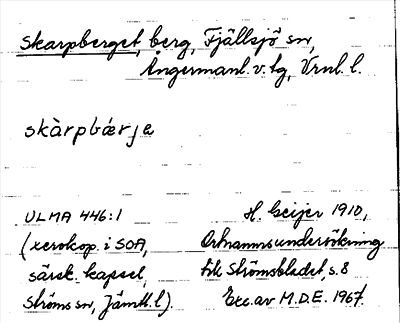 Skarpberget, berg, Fjällsjö sn,
Ångermanl. v. tg, Vrnl. l.
skàrpbǽrja
ULMA 446:1
(xerokop. i SOA,
särsk. kapsel,
Ströms sn, Jämtl. l).
H. Geijer 1910,
Ortnamnsundersökning
till Strömsbladet, s. 8
Exc. av M.D.E. 1967.